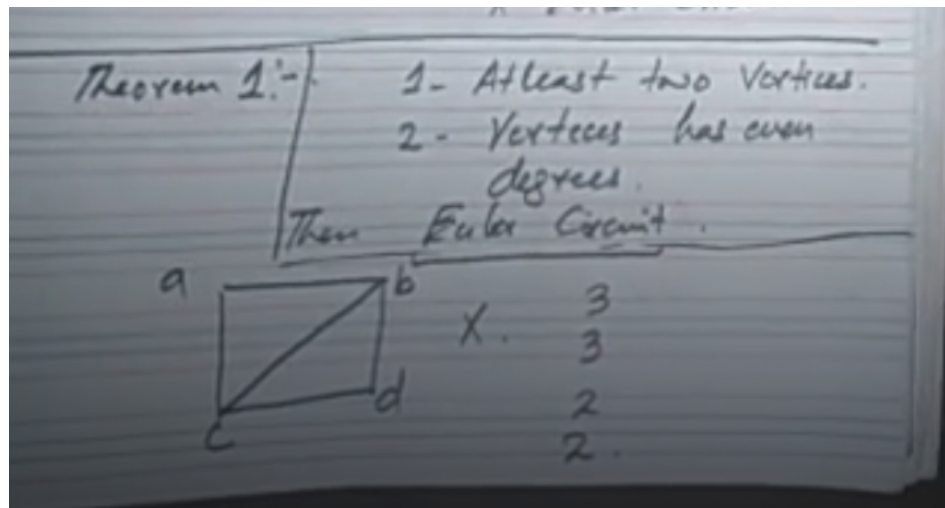 Theorem 1:-
1- Atleast two Vertices.
2- Verteces has even
degrees.
Then Euler Circuit.
a
b
X.
3
3
d
2
c
2.